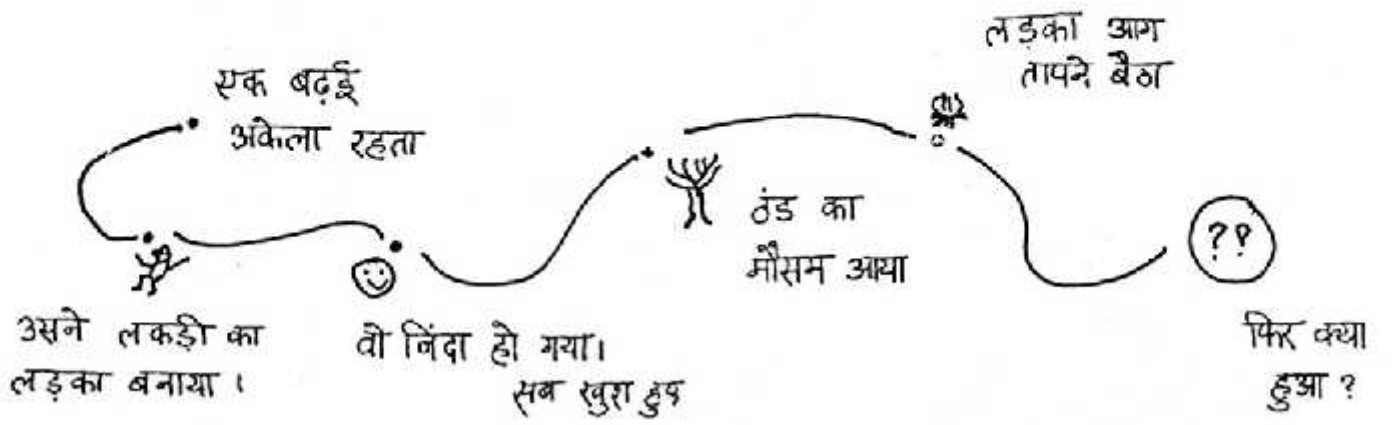 एक बढ़ई
अकेला रहता
उसने लकड़ी का
लड़का बनाया ।
वो जिंदा हो गया।
सब खुश हुए
ठंड का
मौसम आया
लड़का आग
तापने बैठा
??
फिर क्या
हुआ ?